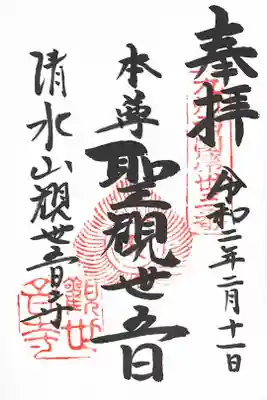 奉拝
令和二年二月十一日
本尊
聖観世音
清水山観世音寺
觀世音寺